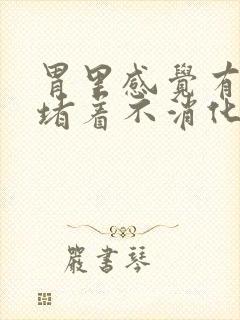 胃里感覺有
堵着不消化
嚴書琴